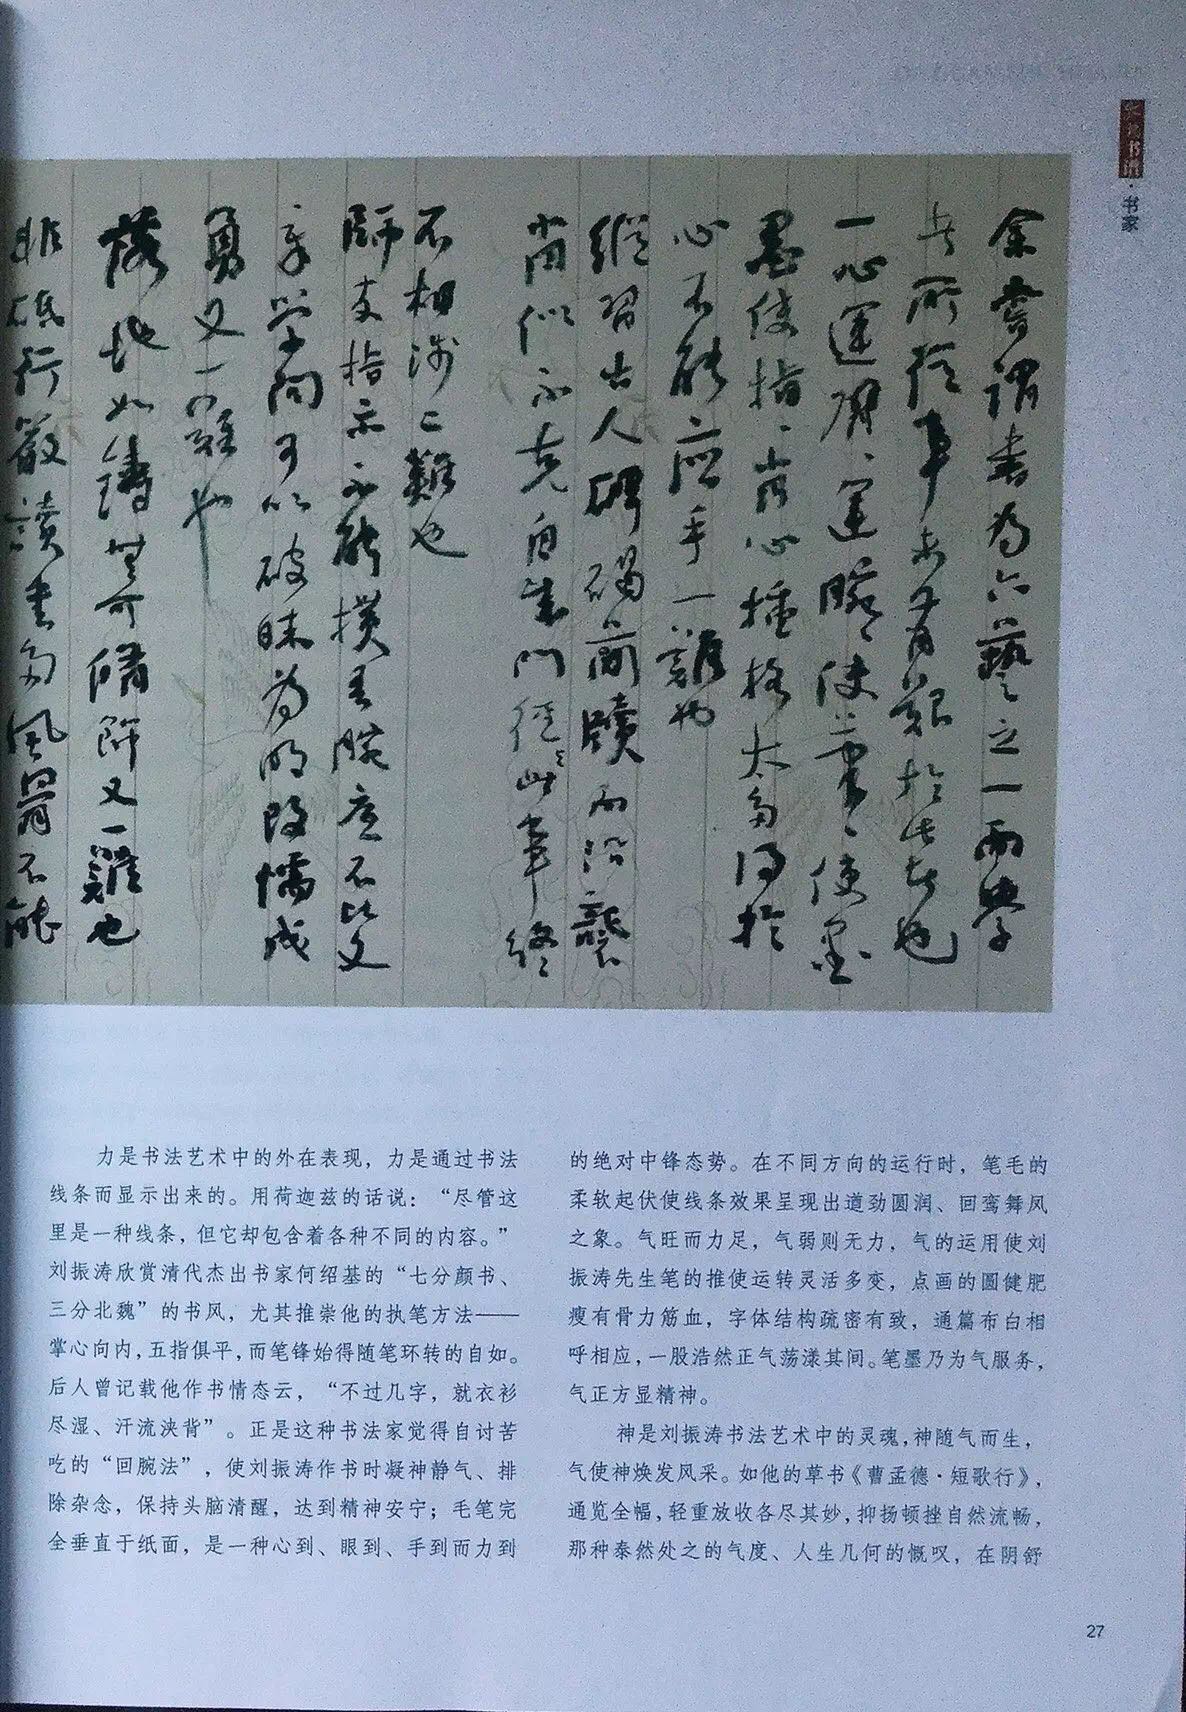 书家
余嘗謂書為六藝之一而學
者所從事未有難於此者也
一心運臂、運腕、使筆、使墨
墨使指、心
心不能應手一難也
縱習古人碑碣簡牘而沿襲
尚似不克自生門徑此事終
不相涉二難也
師友指示不能撲吾腕應不比文
章學問可以破昧為明改懦成
勇又一難也
落地如鑄無可修飾又一難也
非砥行嚴讀書多風骨不能
力是书法艺术中的外在表现，力是通过书法
线条而显示出来的。用荷迦兹的话说：“尽管这
里是一种线条，但它却包含着各种不同的内容。”
刘振涛欣赏清代杰出书家何绍基的“七分颜书、
三分北魏”的书风，尤其推崇他的执笔方法——
掌心向内，五指俱平，而笔锋始得随笔环转的自如。
后人曾记载他作书情态云，“不过几字，就衣衫
尽湿、汗流浃背”。正是这种书法家觉得自讨苦
吃的“回腕法”，使刘振涛作书时凝神静气、排
除杂念，保持头脑清醒，达到精神安宁；毛笔完
全垂直于纸面，是一种心到、眼到、手到而力到
的绝对中锋态势。在不同方向的运行时，笔毛的
柔软起伏使线条效果呈现出遒劲圆润、回鸾舞凤
之象。气旺而力足，气弱则无力，气的运用使刘
振涛先生笔的推使运转灵活多变，点画的圆健肥
瘦有骨力筋血，字体结构疏密有致，通篇布白相
呼相应，一股浩然正气荡漾其间。笔墨乃为气服务，
气正方显精神。
神是刘振涛书法艺术中的灵魂，神随气而生，
气使神焕发风采。如他的草书《曹孟德·短歌行》，
通览全幅，轻重放收各尽其妙，抑扬顿挫自然流畅，
那种泰然处之的气度、人生几何的慨叹，在阴舒
27